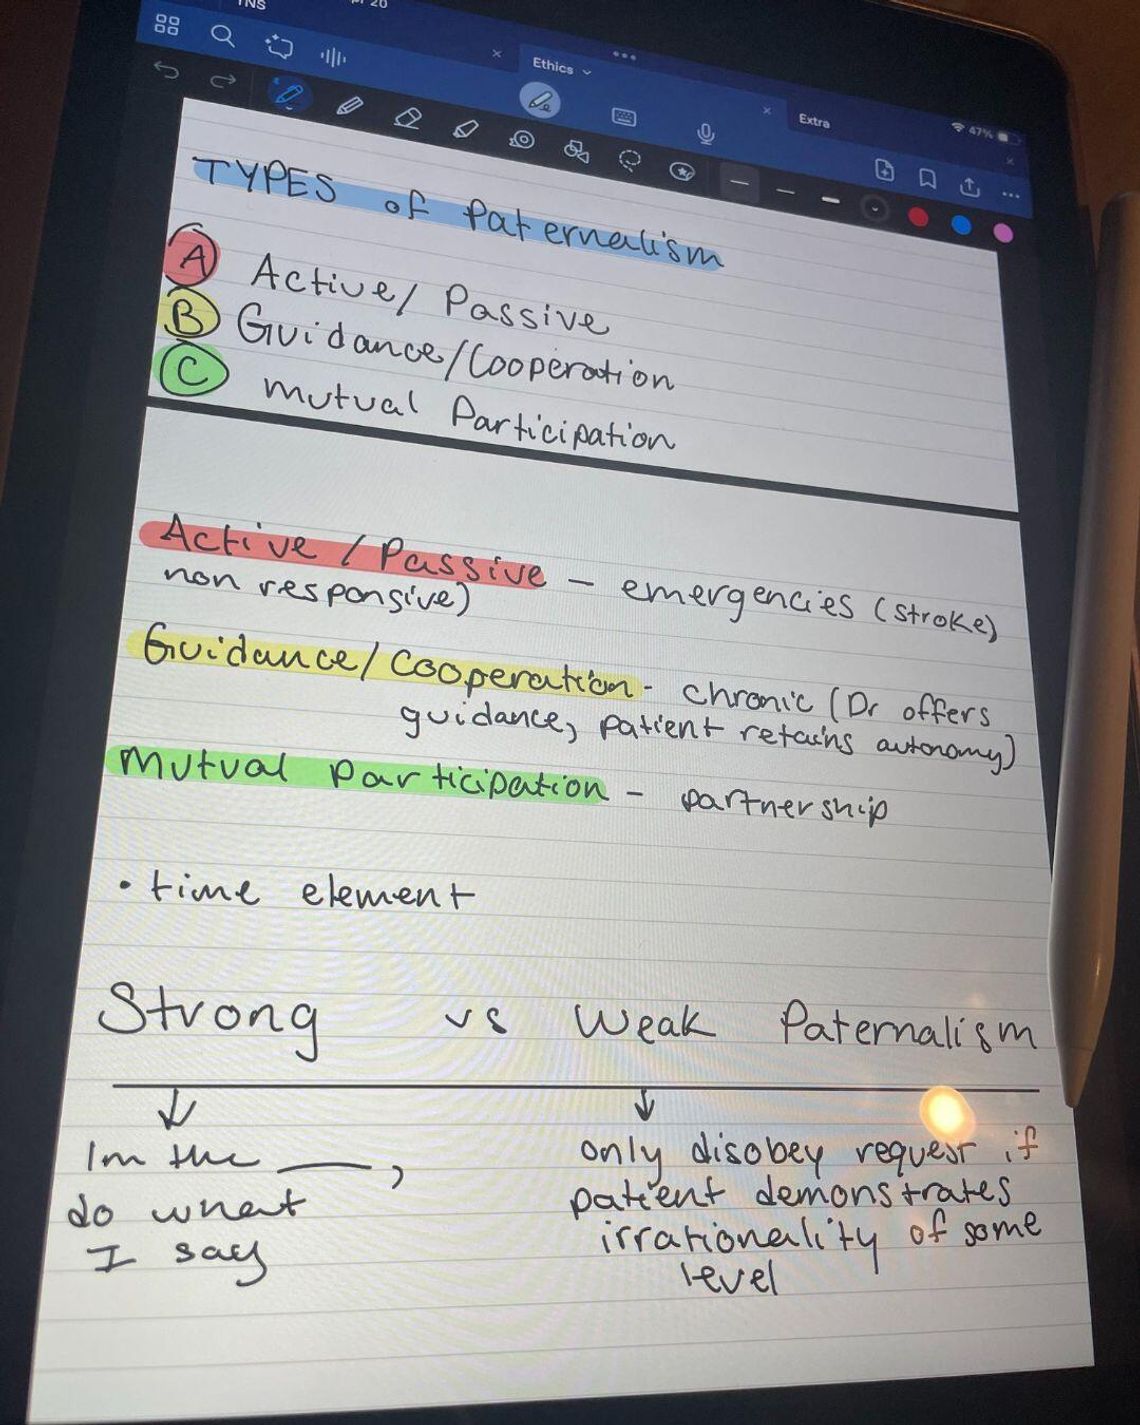 Ethics
Extra
47%
TYPES of Paternalism
A Active/ Passive
B Guidance/Cooperation
C Mutual Participation
Active / Passive - emergencies (stroke,
non responsive)
Guidance/ Cooperation - chronic (Dr offers
guidance, patient retains autonomy)
Mutual Participation - partnership
• time element
Strong vs Weak Paternalism
Im the ___,
do what
I say
only disobey request if
patient demonstrates
irrationality of some
level